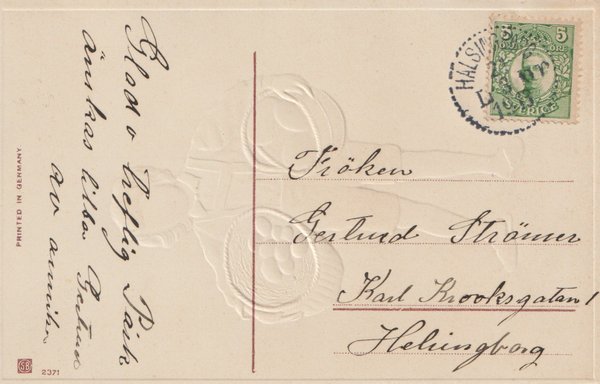 Glad o treflig Påsk
önskas lilla Gertrud
av annika
PRINTED IN GERMANY
2371
5 5
SVERIGE
HÄLSING
Fröken
Gertrud Strömer
Karl Krooksgatan 1
Helsingborg